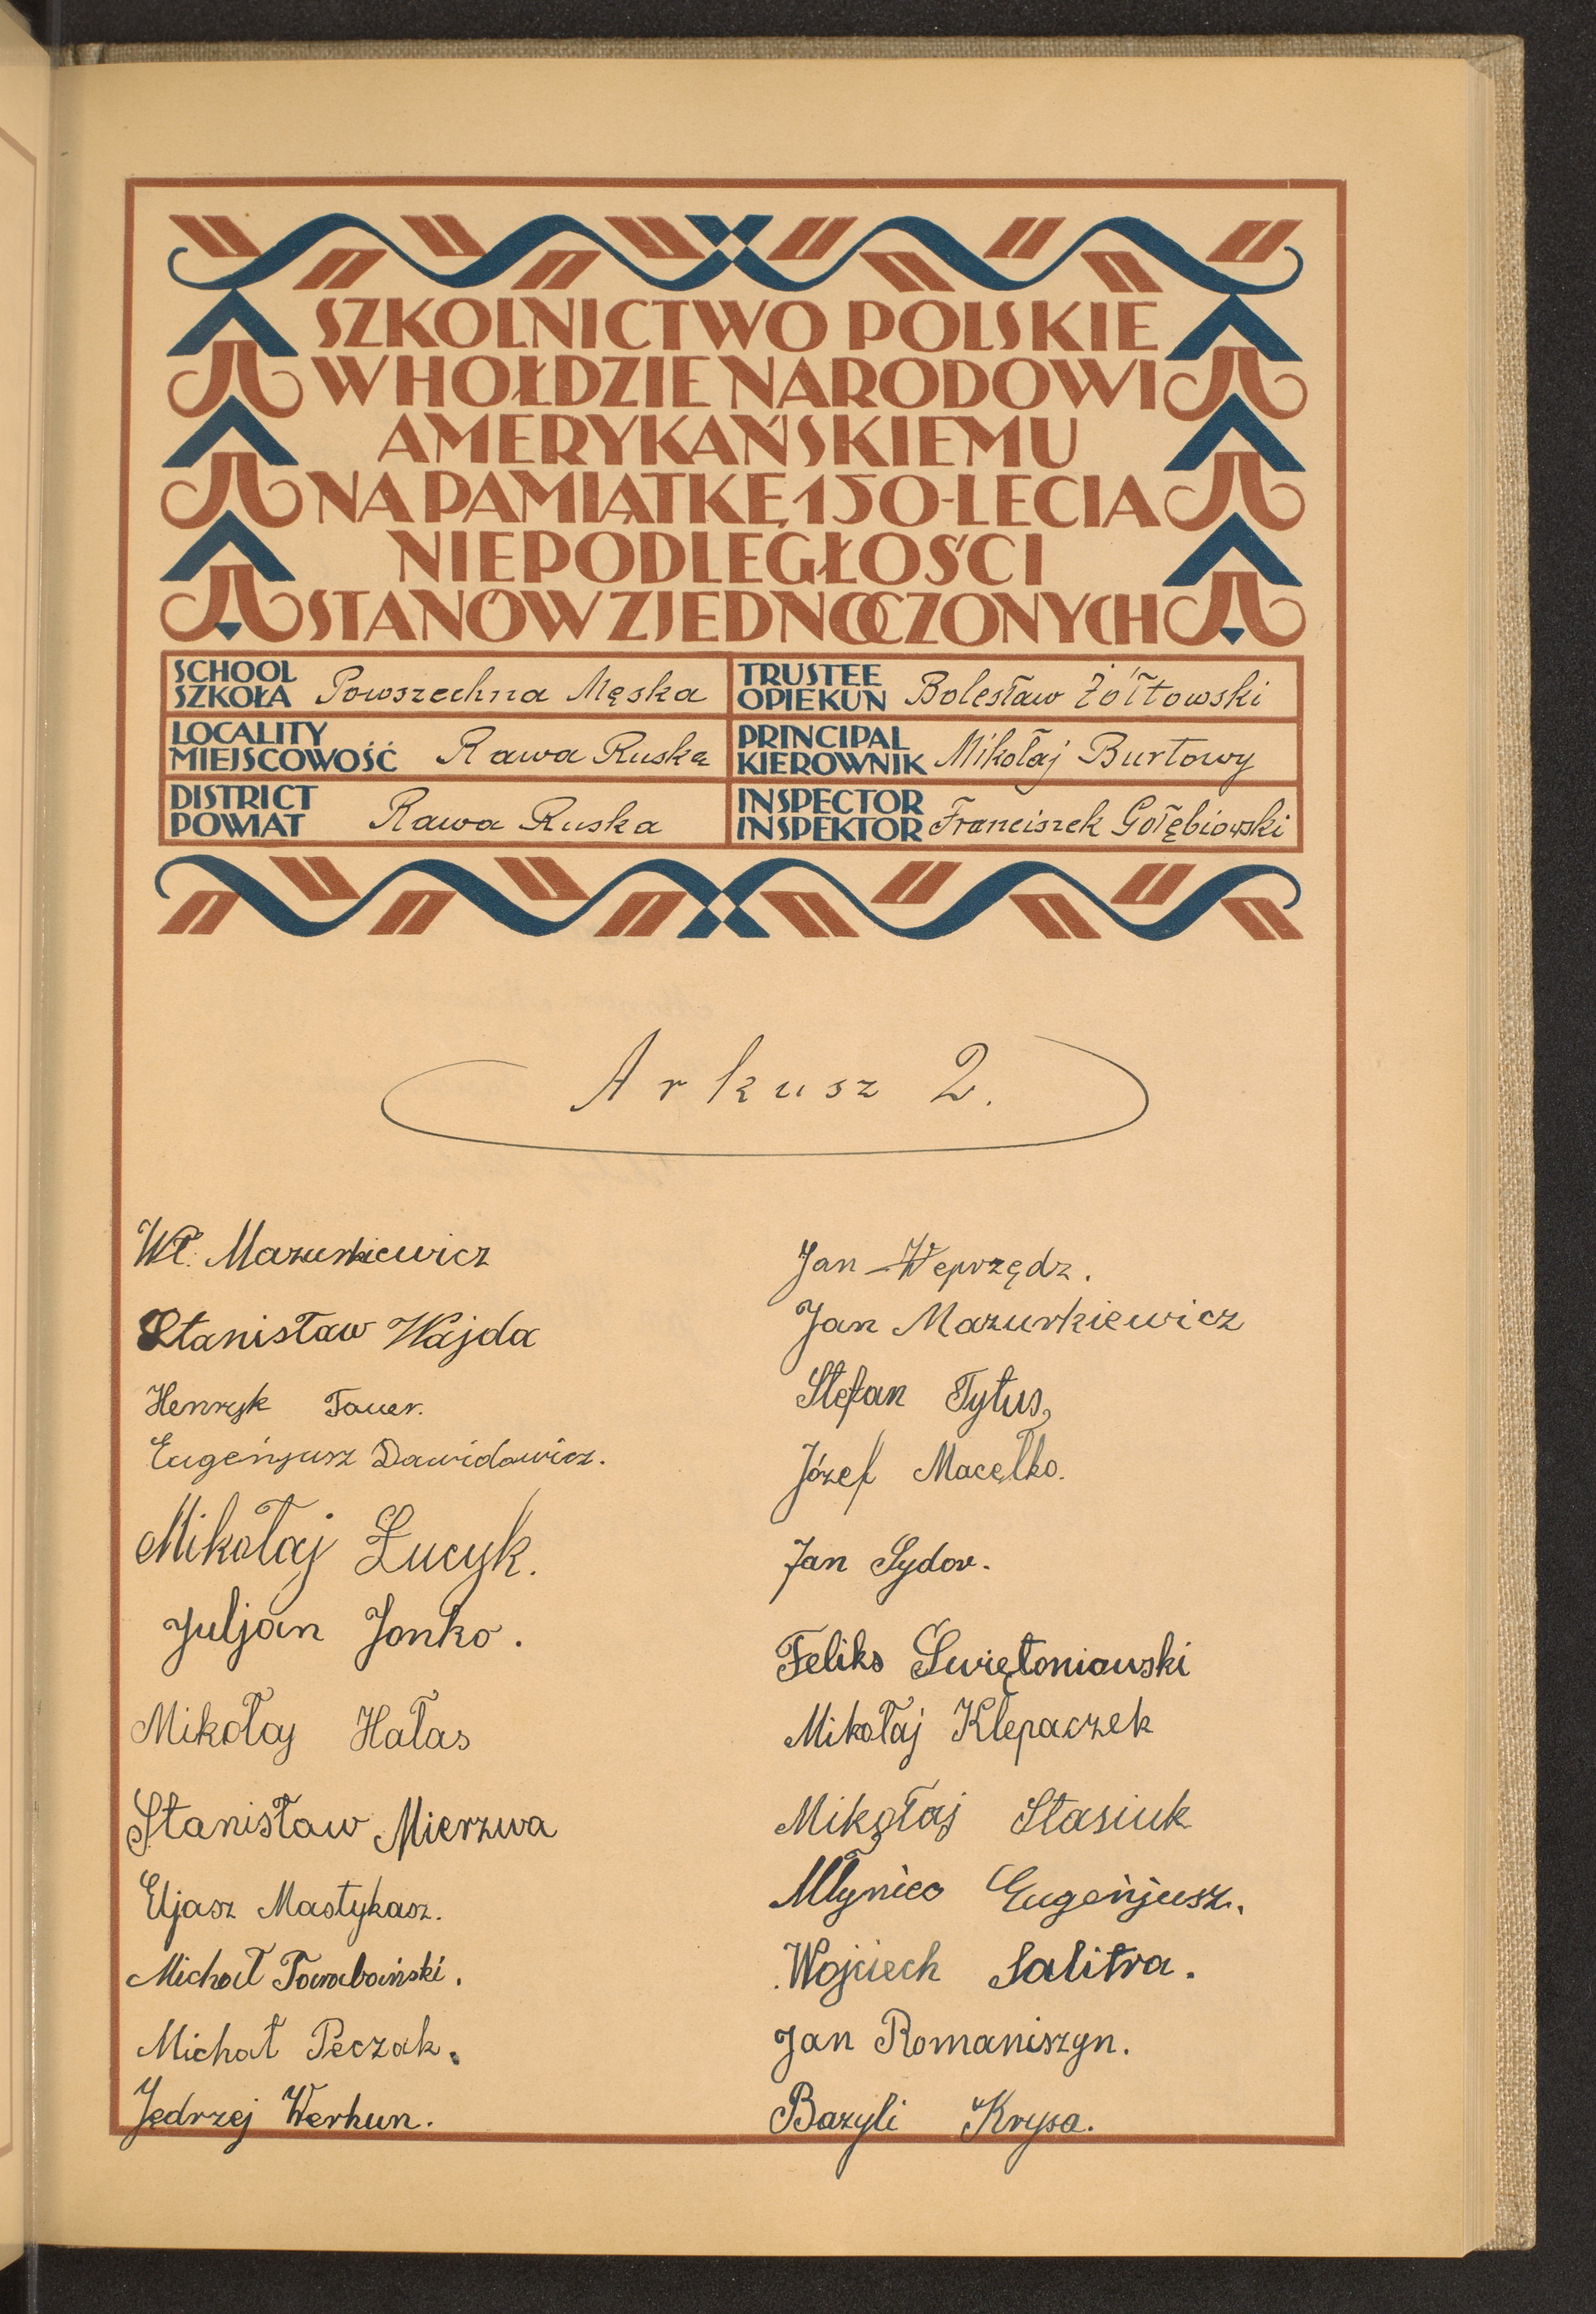 SZKOLNICTWO POLSKIE
W HOŁDZIE NARODOWI
AMERYKAŃSKIEMU
NA PAMIĄTKĘ 150-LECIA
NIEPODLEGŁOŚCI
STANÓW ZJEDNOCZONYCH
SCHOOL
SZKOŁA Powszechna Męska
TRUSTEE
OPIEKUN Bolesław Żółtowski
LOCALITY
MIEJSCOWOŚĆ Rawa Ruska
PRINCIPAL
KIEROWNIK Mikołaj Burłowy
DISTRICT
POWIAT Rawa Ruska
INSPECTOR
INSPEKTOR Franciszek Gołębiowski
Arkusz 2.
Wł. Mazurkiewicz
Stanisław Wajda
Henryk Tauer.
Eugenjusz Dawidowicz.
Mikołaj Łucyk.
Juljan Jonko.
Mikołaj Hałas
Stanisław Mierzwa
Eljasz Mastykasz.
Michał Tarabański.
Michał Peczak.
Jędrzej Werhun.
Jan Weprzędz.
Jan Mazurkiewicz
Stefan Tytus,
Józef Macełko.
Jan Sydor.
Feliks Swiętoniowski
Mikołaj Klepaczek
Mikołaj Stasiuk
Młynico Eugenjusz.
Wojciech Salitra.
Jan Romaniszyn.
Bazyli Krysa.